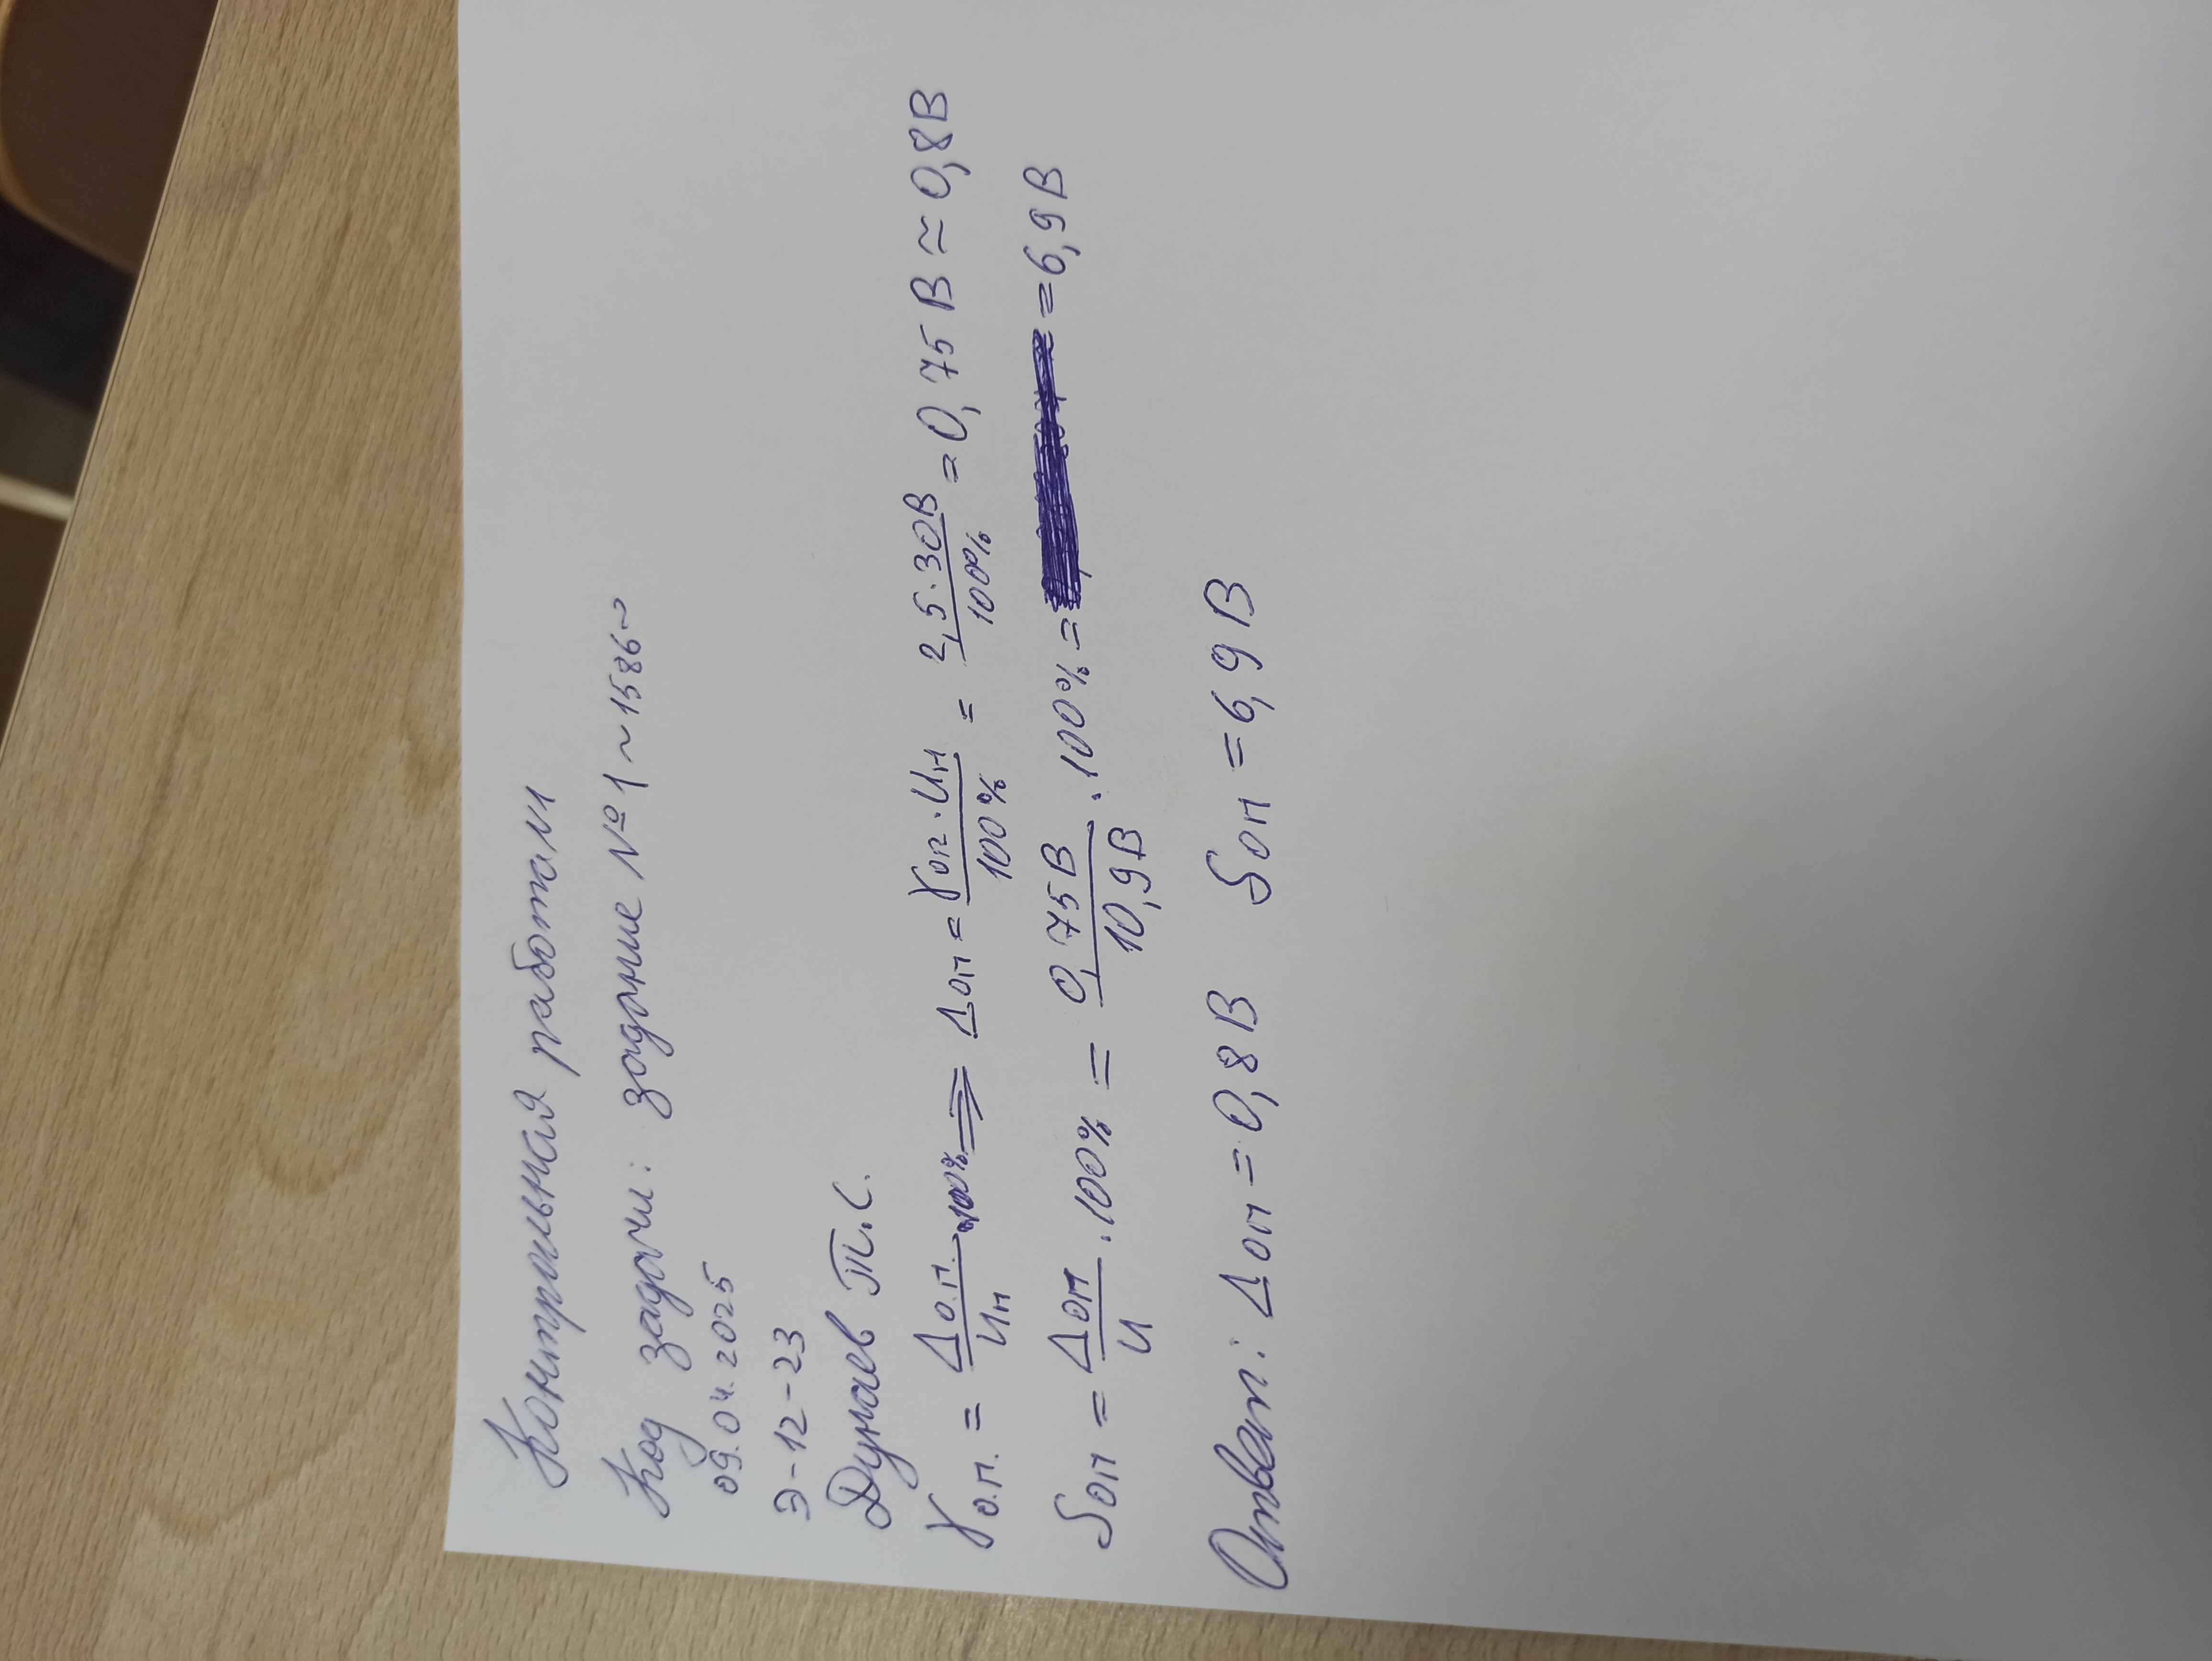 Контрольная работа
Код задачи: задание №1 ~1586~
09.04.2025
Э-12-23
Дунаев Т.С.
γо.п. = Δо.п./Uн · 100% ⟹ Δоп = γоп · Uн / 100% = 2,5 · 30В / 100% = 0,75В ≃ 0,8В
δоп = Δоп/U · 100% = 0,75В/10,9В · 100% = = 6,9В
Ответ: Δоп = 0,8В δоп = 6,9В